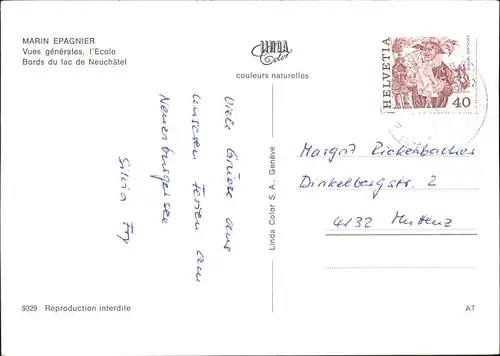 MARIN EPAGNIER
Vues générales, l'Ecole
Bords du lac de Neuchâtel
LINDA
Color
couleurs naturelles
HELVETIA
40
Viele Grüsse aus
unseren Ferien am
Neuenburgersee
Silvia Fry
Linda Color S. A., Genève
Margrit Rickenbacher
Dinkelbergstr. 2
4132 Muttenz
9329 Reproduction interdite
AT